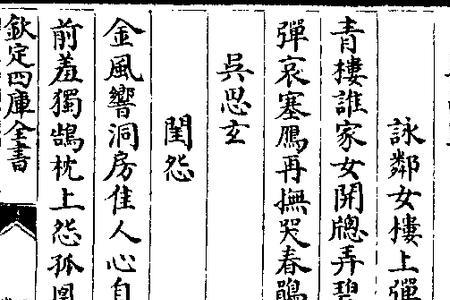 詠鄰女樓上彈
青樓誰家女開牕弄碧
彈哀塞鴈再撫哭春鵑
吳思玄
閨怨
金風響洞房佳人心自
前羞獨鵠枕上怨孤
欽定四庫全書